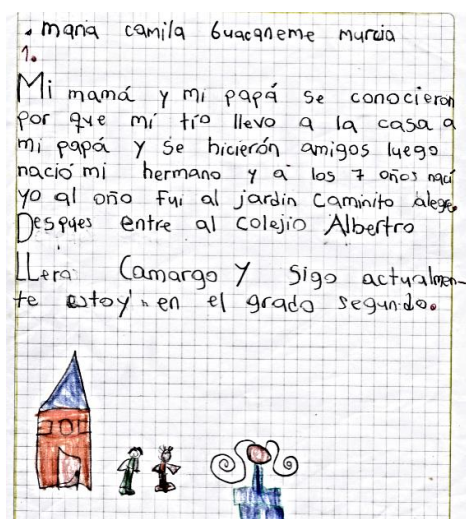 . maria camila Guacaneme murcia
1.
Mi mamá y mi papá se conocieron
por que mi tio llevo a la casa a
mi papá y se hicierón amigos luego
nació mi hermano y a los 7 años nací
yo al año fui al jardin Caminito alege.
Despues entre al colejio Albertro
LLera Camargo y sigo actualmen-
te estoy en el grado segundo.